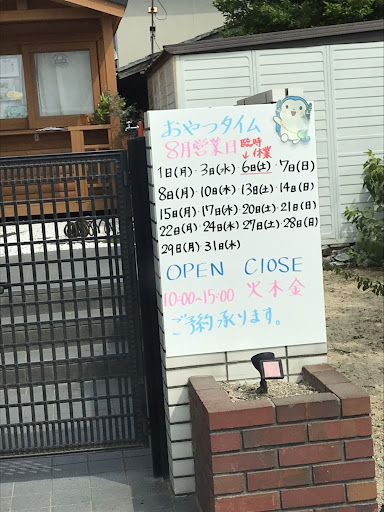 おやつタイム
8月営業日 臨時
↓休業
1日(月)・3日(水)・6日(土)・7日(日)
8日(月)・10日(水)・13日(土)・14日(日)
15日(月)・17日(水)・20日(土)・21日(日)
22日(月)・24日(水)・27日(土)・28日(日)
29日(月)・31日(水)
OPEN CLOSE
10:00~15:00 火木金
ご予約承ります。